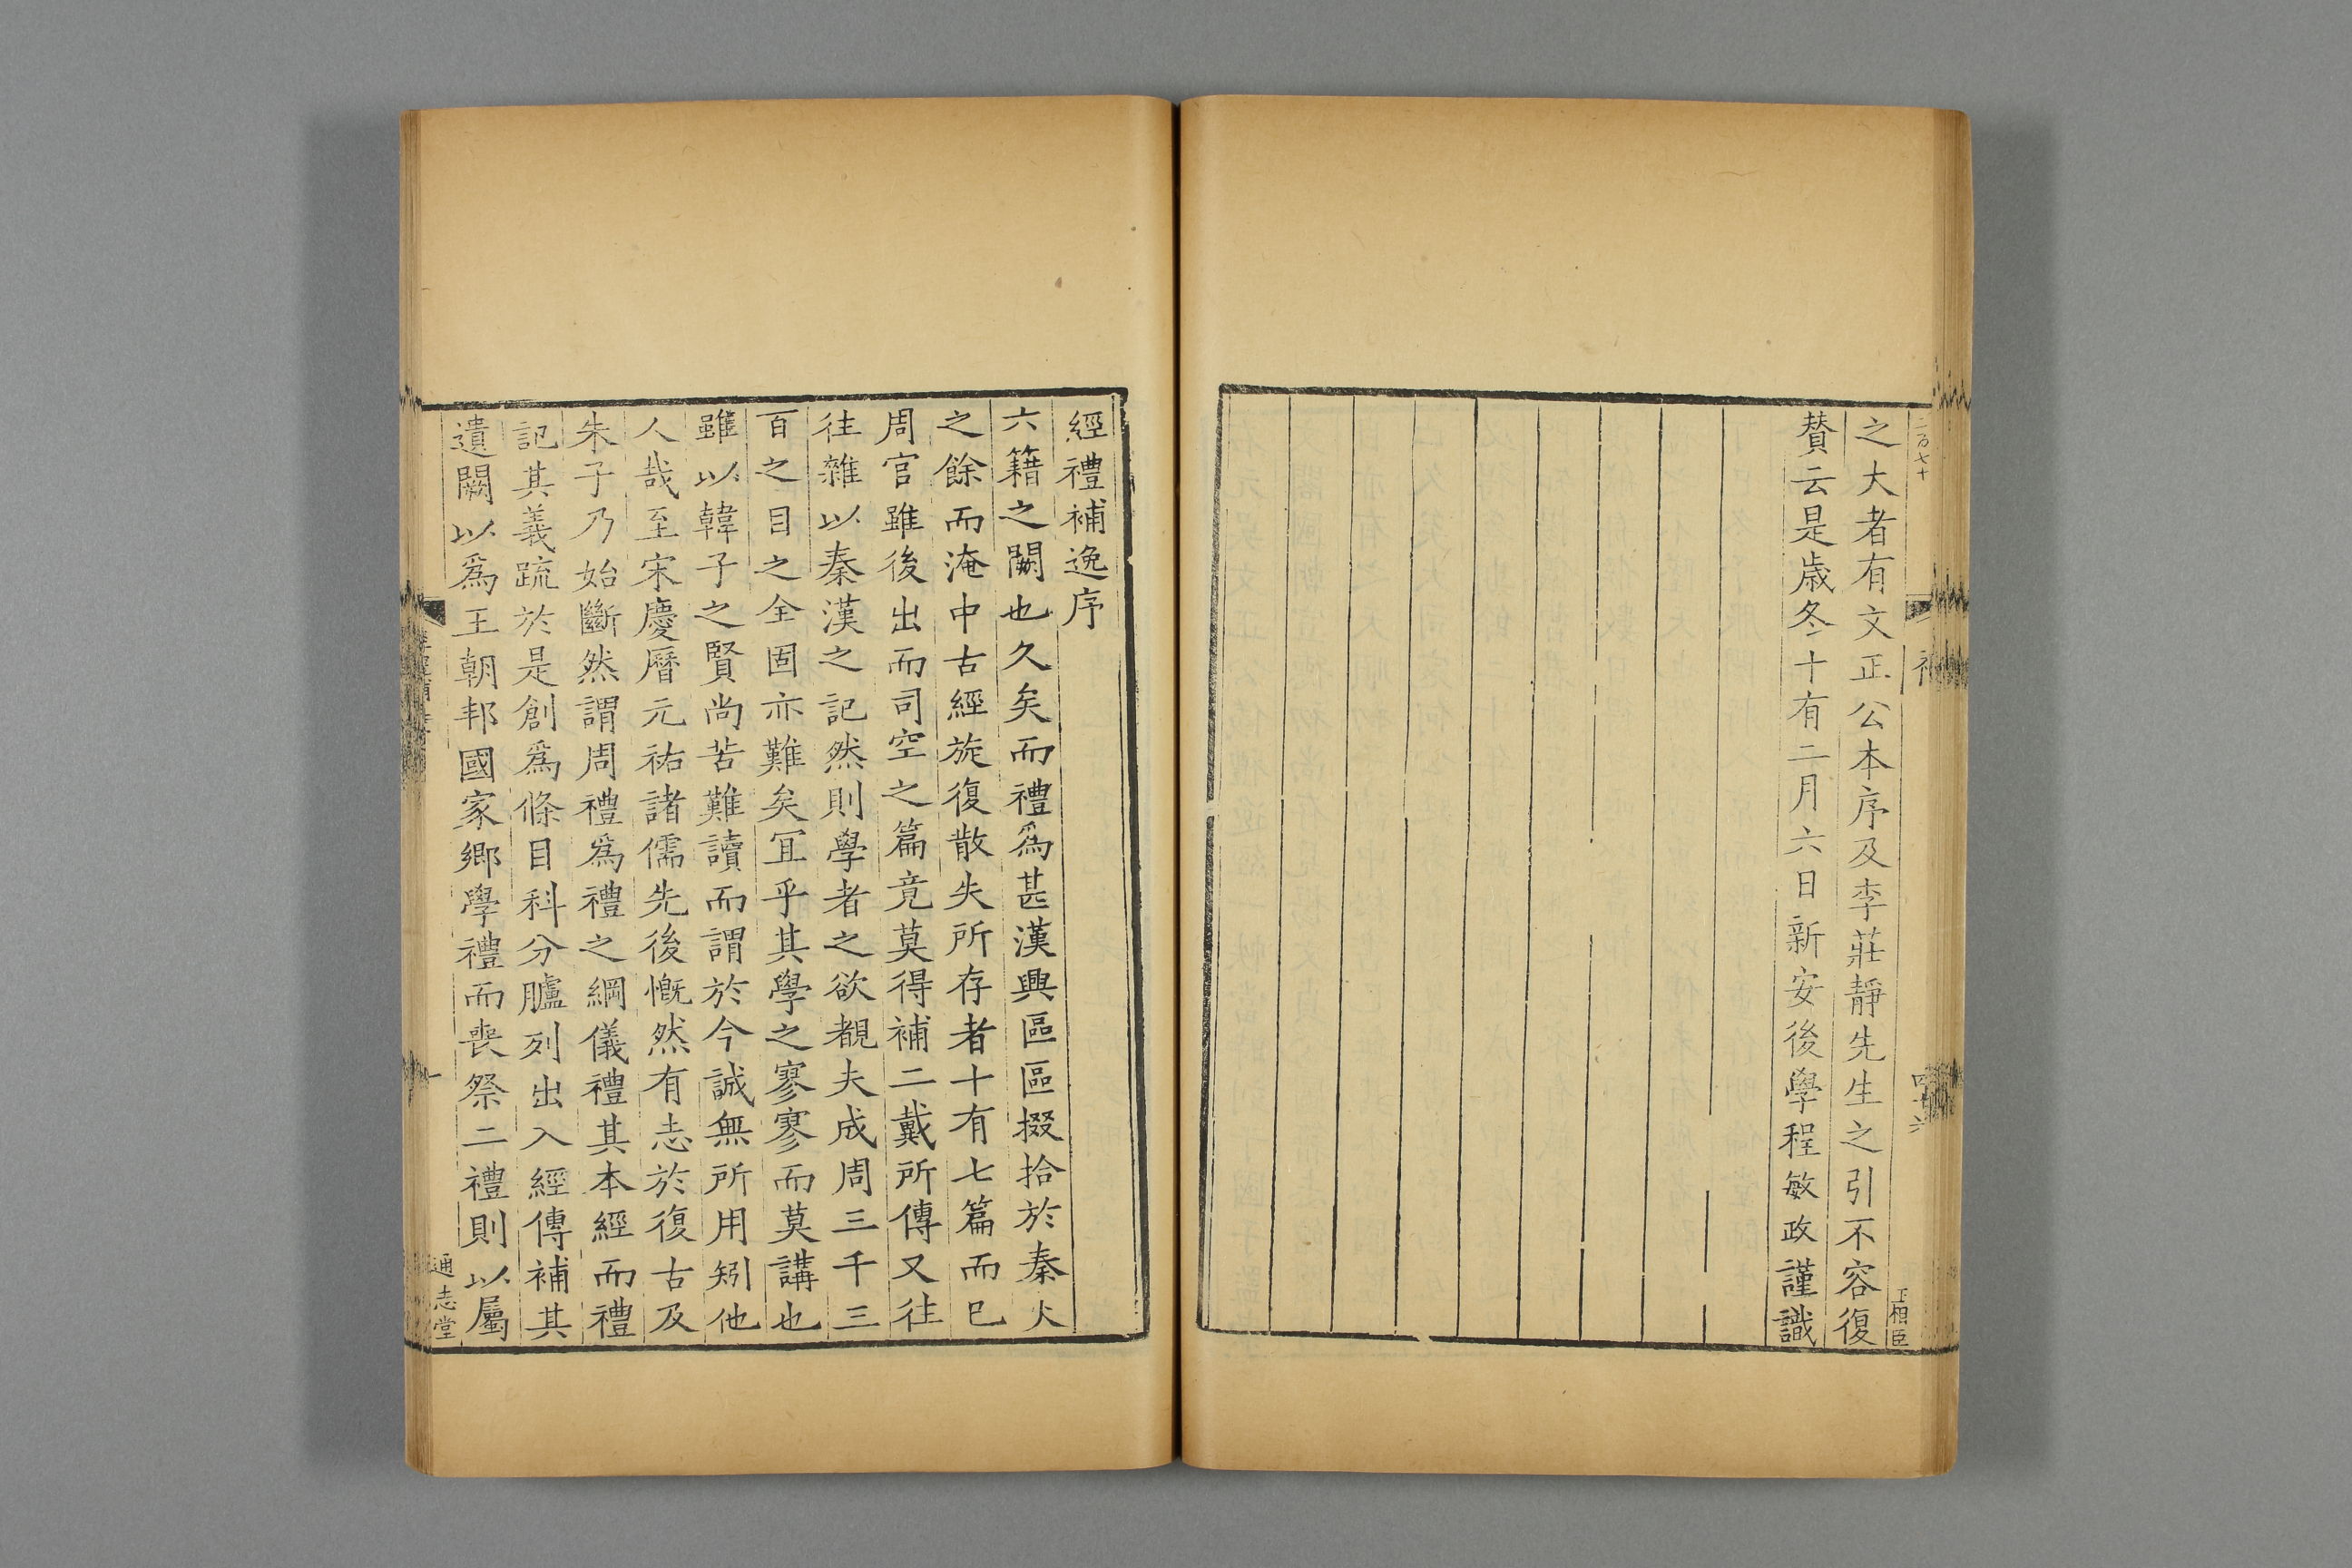 之大者有文正公本序及李莊靜先生之引不容復
賛云是歳冬十有二月六日新安後學程敏政謹識
經禮補逸序
六籍之闕也久矣而禮爲甚漢興區區掇拾於秦火
之餘而淹中古經旋復散失所存者十有七篇而已
周官雖後出而司空之篇竟莫得補二戴所傳又往
往雜以秦漢之記然則學者之欲覩夫成周三千三
百之目之全固亦難矣冝乎其學之寥寥而莫講也
雖以韓子之賢尚苦難讀而謂於今誠無所用矧他
人哉至宋慶曆元祐諸儒先後慨然有志於復古及
朱子乃始斷然謂周禮爲禮之綱儀禮其本經而禮
記其義䟽於是創爲條目科分臚列出入經傳補其
遺闕以爲王朝邦國家鄉學禮而喪祭二禮則以屬
通志堂